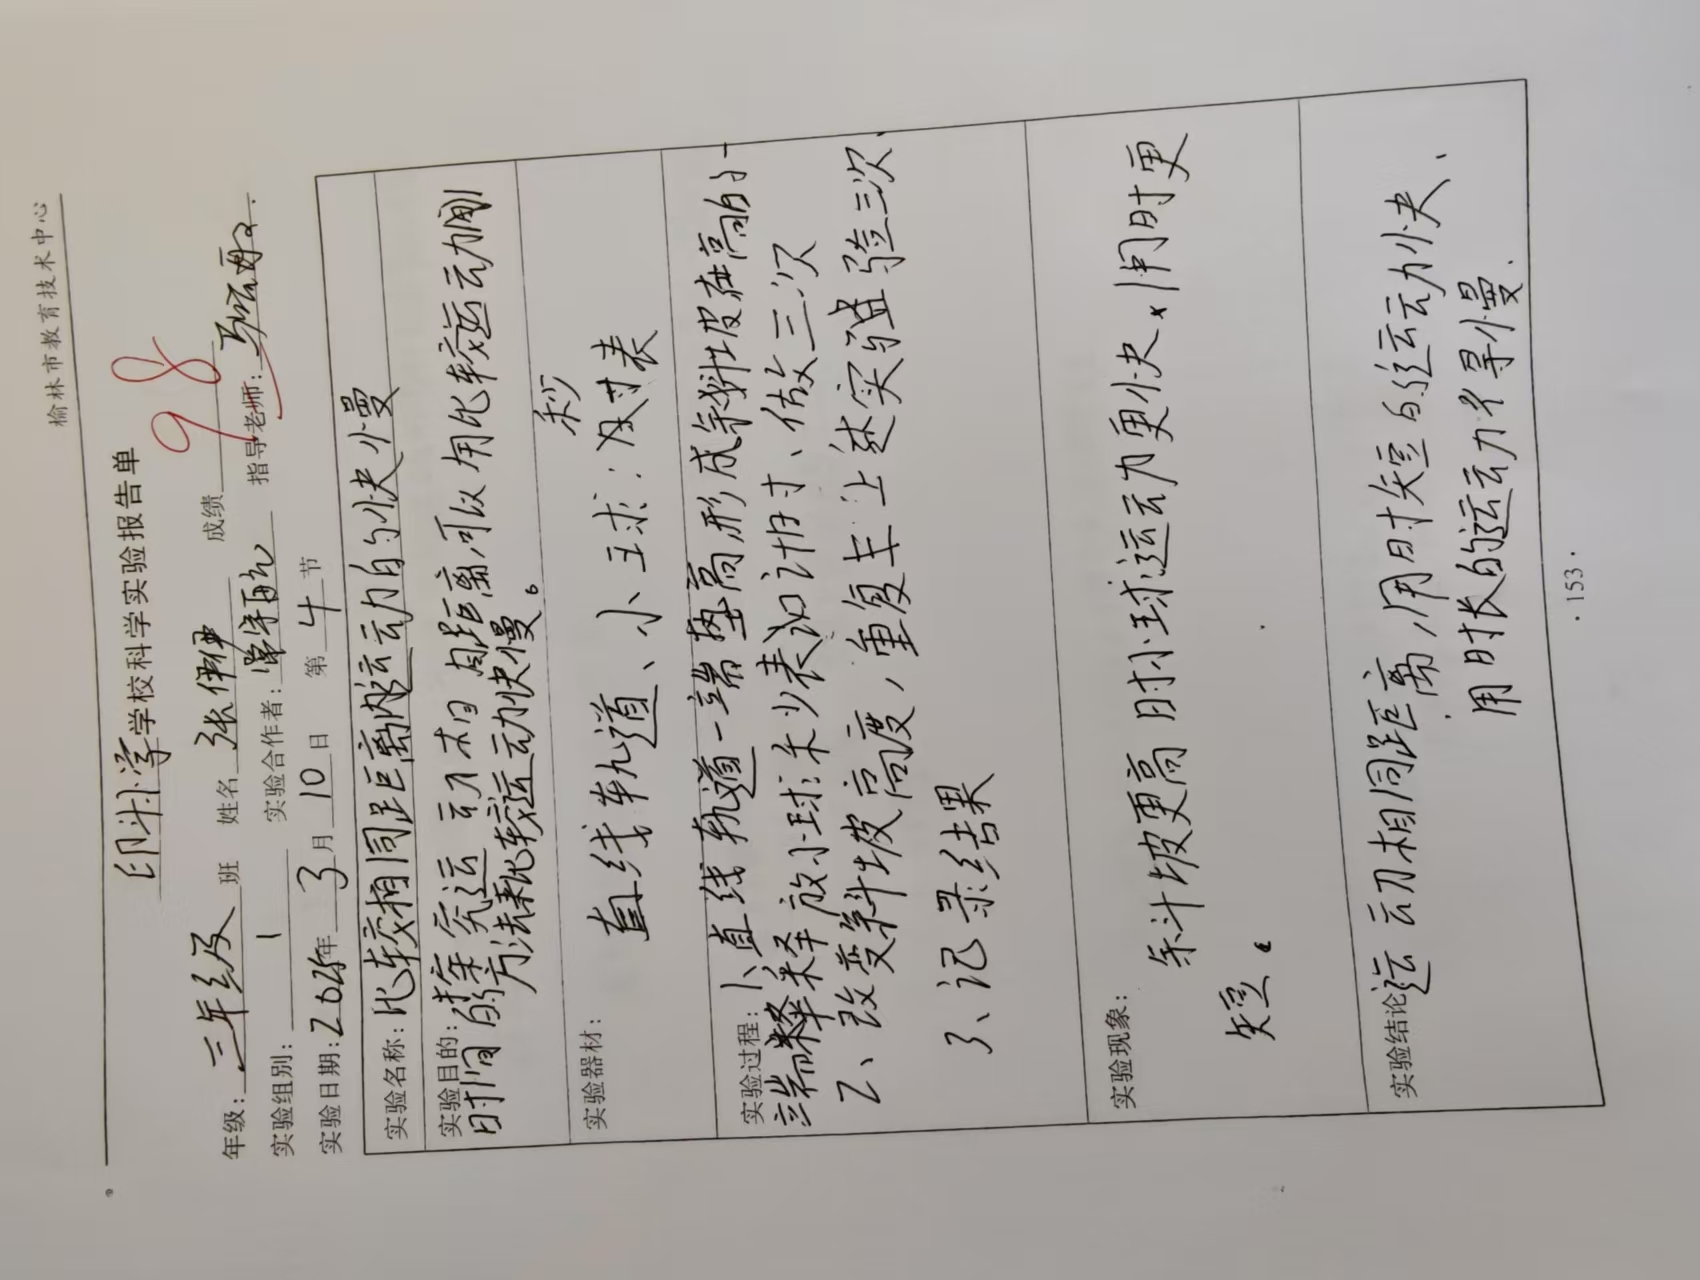 榆林市教育技术中心
印斗小学学校科学实验报告单
年级:三年级 班 姓名 张伊伊 成绩 98
实验组别: 1 实验合作者: 指导老师:
实验日期:2025年 3月 10日 第 4 节
实验名称:比较相同距离内运动的快慢
实验目的:探究运动相同距离所以用比较运动
时间的方法来比较运动快慢。
实验器材:
直线轨道、小球、秒表
实验过程:1、直线轨道一端垫高形成斜坡在高的一
端释放小球秒表记计时、做三次
2、改变斜坡高度,重复上述实验三次
3、记录结果
实验现象:
斜坡更高时小球运动更快、用时更
短。
实验结论:
运动相同距离,用时短的运动快、
用时长的运动得慢.
·153·